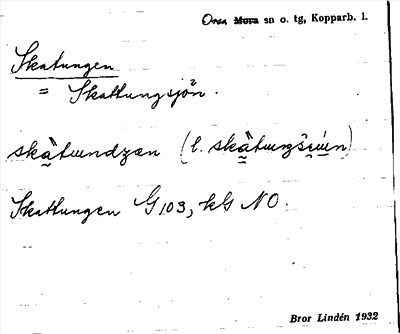 Orsa Mora sn o. tg, Kopparb. l.
Skatungen
= Skattungsjön.
skàtundzæn (l.
Skattungen G103, kG NO.
Bror Lindén 1932